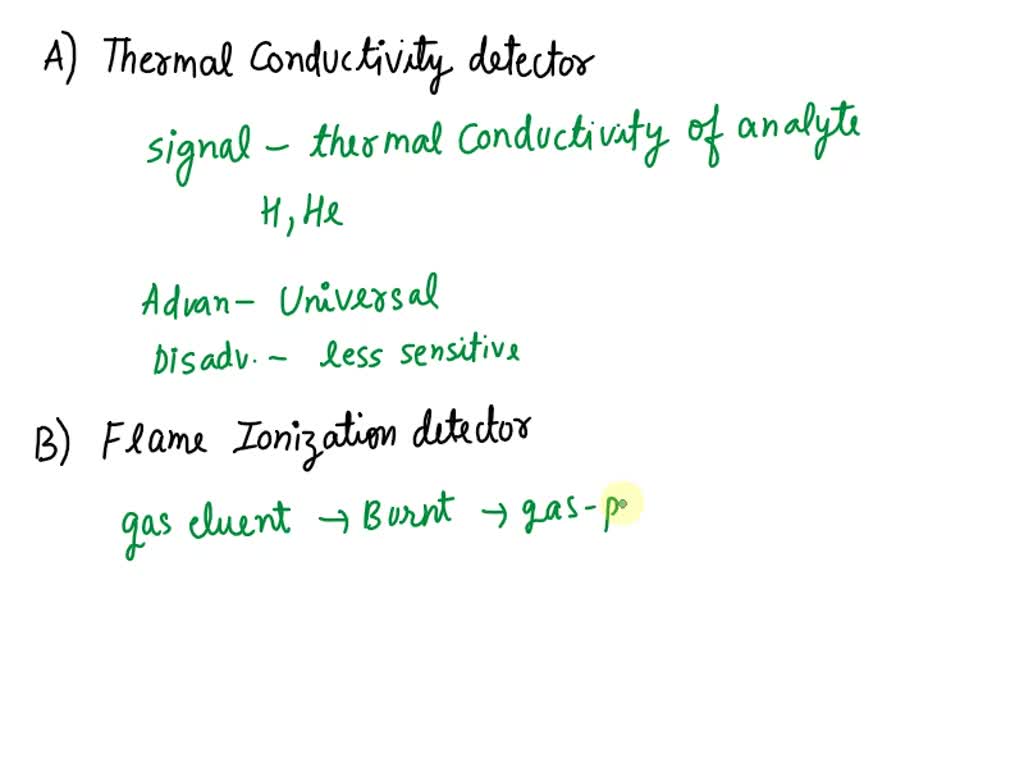 A) Thermal Conductivity detector
signal - thermal conductivity of analyte
H, He
Advan- Universal
Disadv. - less sensitive
B) Flame Ionization detector
gas eluent → Burnt → gas-p